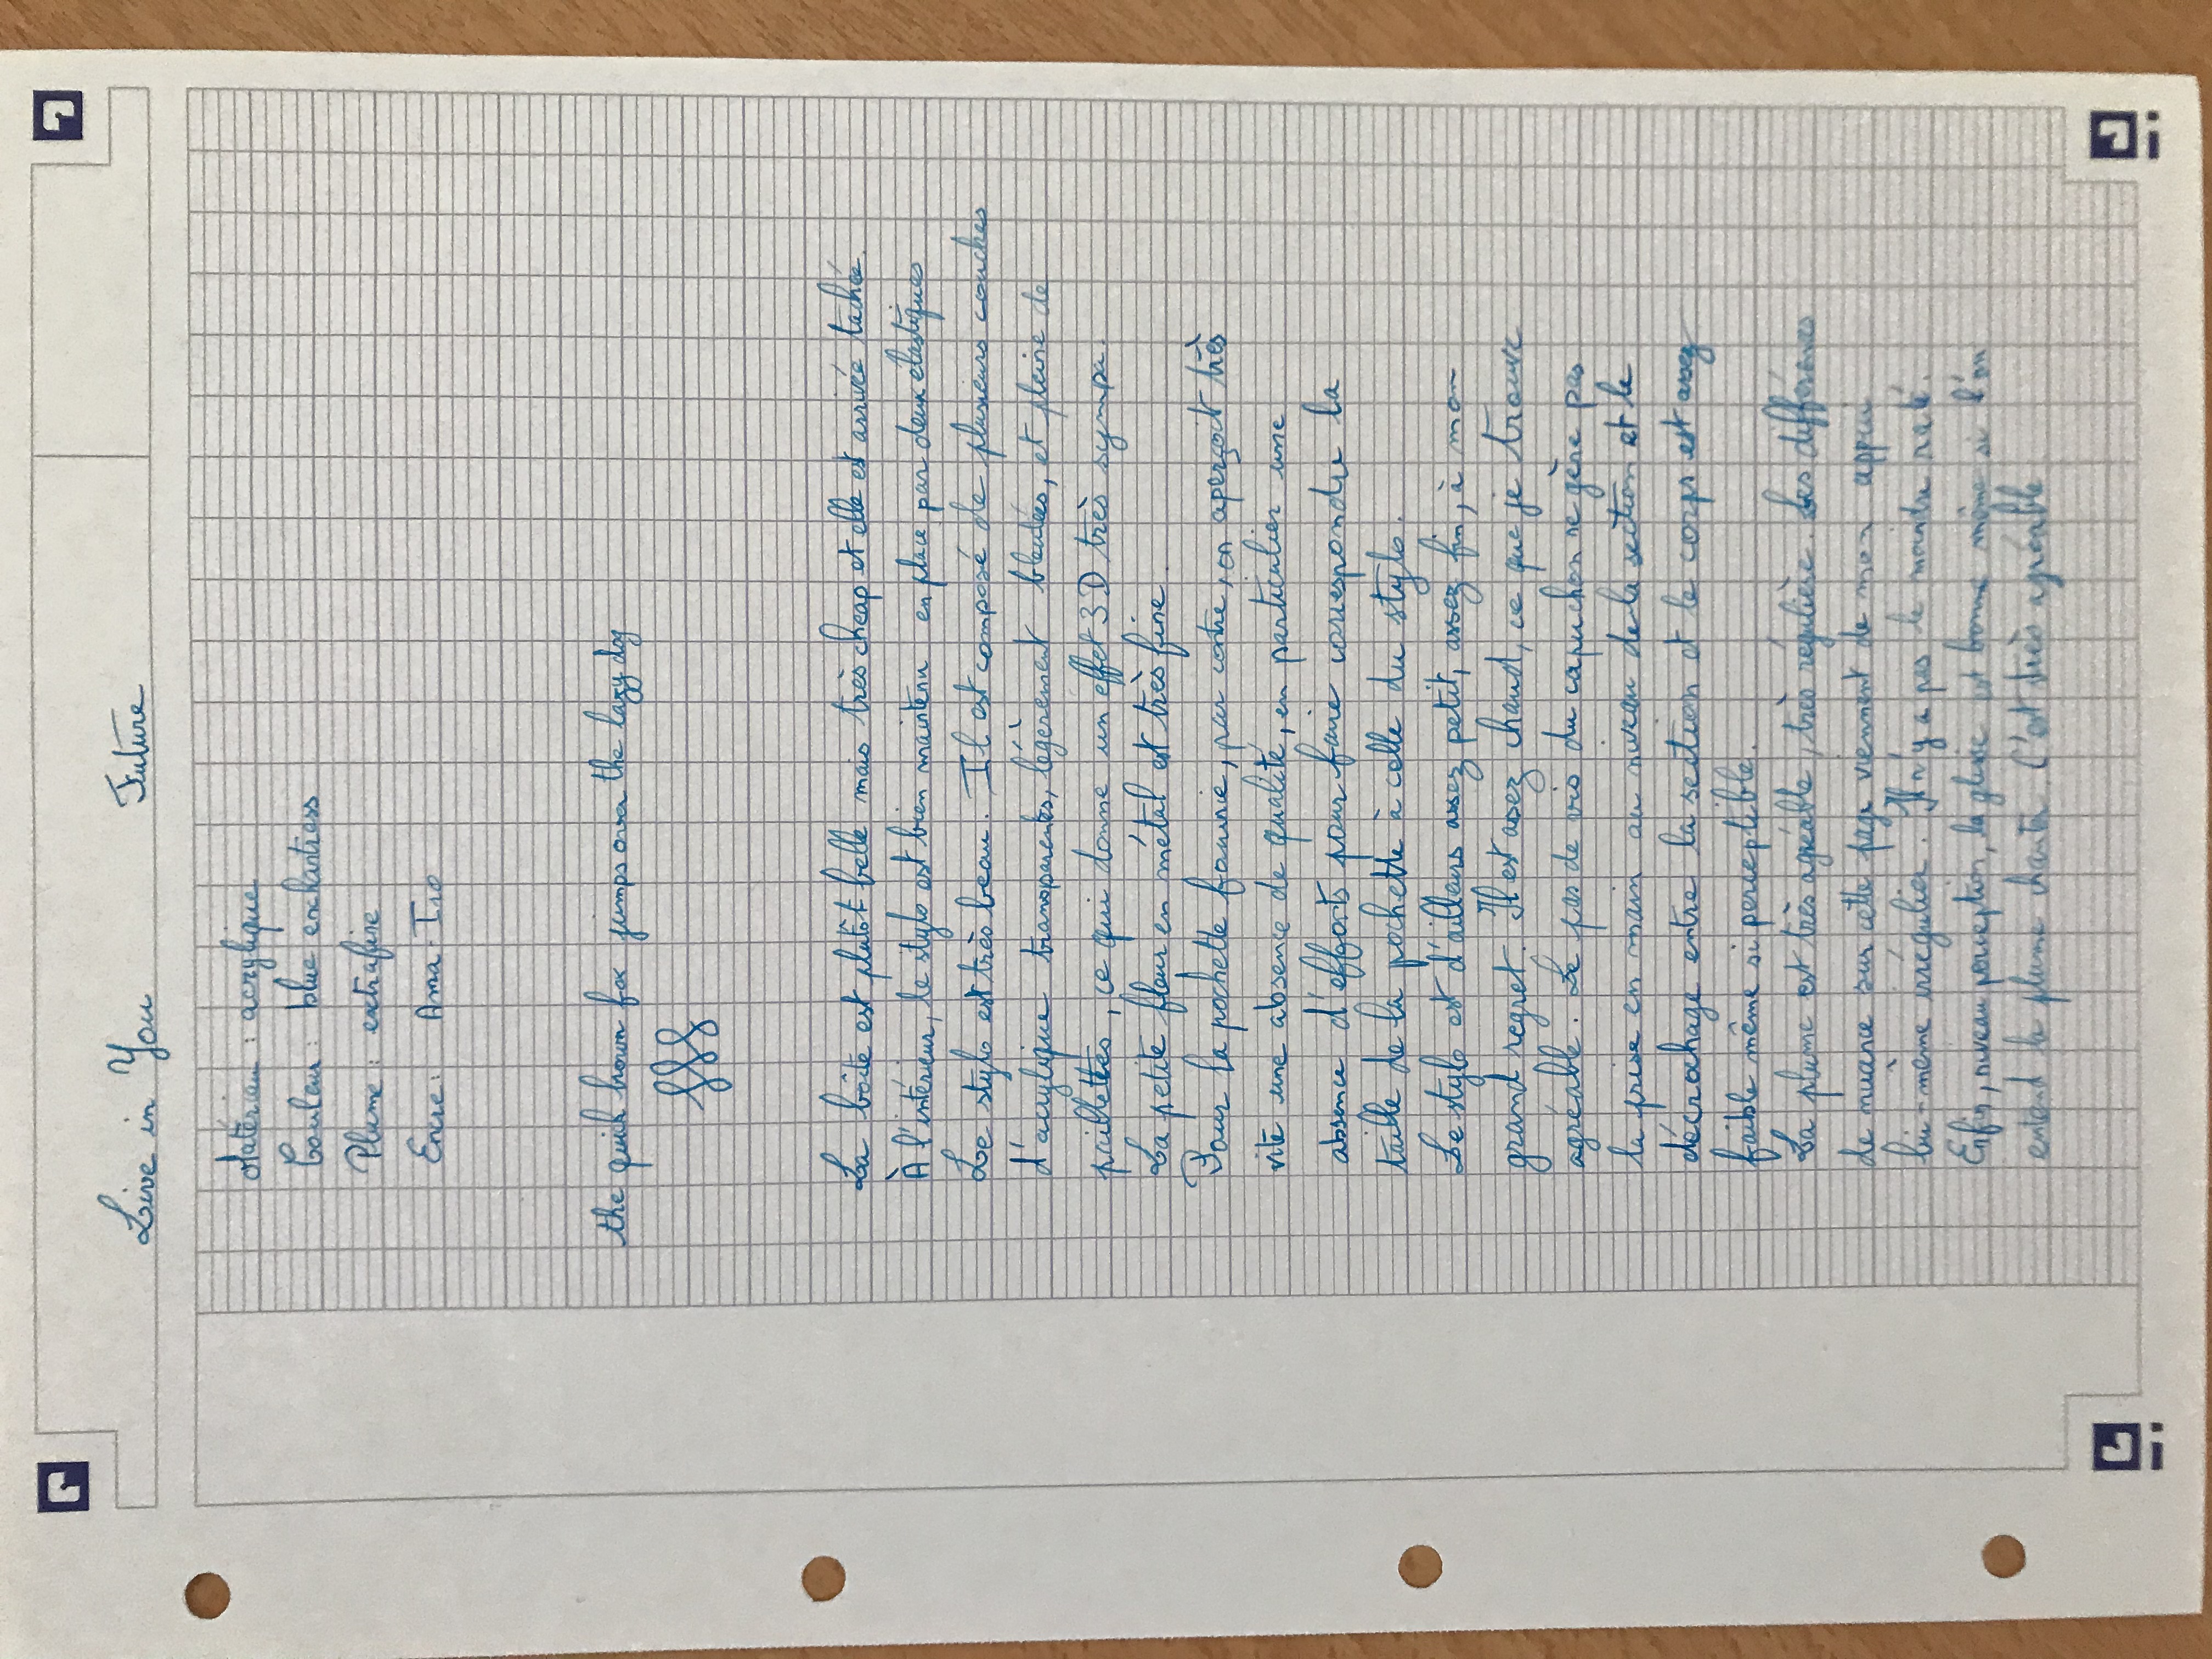 Live in You Future
Matériau : acrylique
Couleur : blue enchantress
Plume : extrafine
Encre : Ama-Iro
the quick brown fox jumps over the lazy dog
La boîte est plutôt belle mais très cheap et elle est arrivée tachée.
À l'intérieur, le stylo est bien maintenu en place par deux élastiques
Le stylo est très beau. Il est composé de plusieurs couches
d'acrylique transparentes, légèrement bleutées, et pleine de
paillettes, ce qui donne un effet 3D très sympa.
La petite fleur en métal est très fine.
Pour la pochette fournie, par contre, on aperçoit très
vite une absence de qualité, en particulier une
absence d'efforts pour faire correspondre la
taille de la pochette à celle du stylo.
Le stylo est d'ailleurs assez petit, assez fin, à mon
grand regret. Il est assez chaud, ce que je trouve
agréable. Le pas de vis du capuchon ne gène pas
la prise en main au niveau de la section et le
décrochage entre la section et le corps est assez
faible même si perceptible.
La plume est très agréable, très régulière. Les différences
de nuance sur cette page viennent de mon appui
lui-même irrégulier. Il n'y a pas le moindre raté.
Enfin, niveau perception, la glisse est bonne même si l'on
entend la plume chanter. C'est très agréable